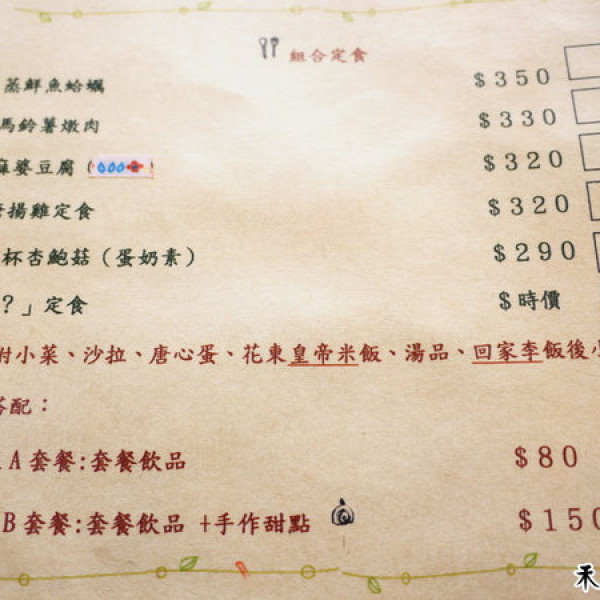 組合定食
蒸鮮魚蛤蠣 $350
馬鈴薯燉肉 $330
麻婆豆腐 ( ) $320
揚雞定食 $320
杯杏鮑菇（蛋奶素） $290
？」定食 $時價
附小菜、沙拉、唐心蛋、花東皇帝米飯、湯品、回家李飯後小
搭配：
A套餐:套餐飲品 $80
B套餐:套餐飲品 +手作甜點 $150
禾